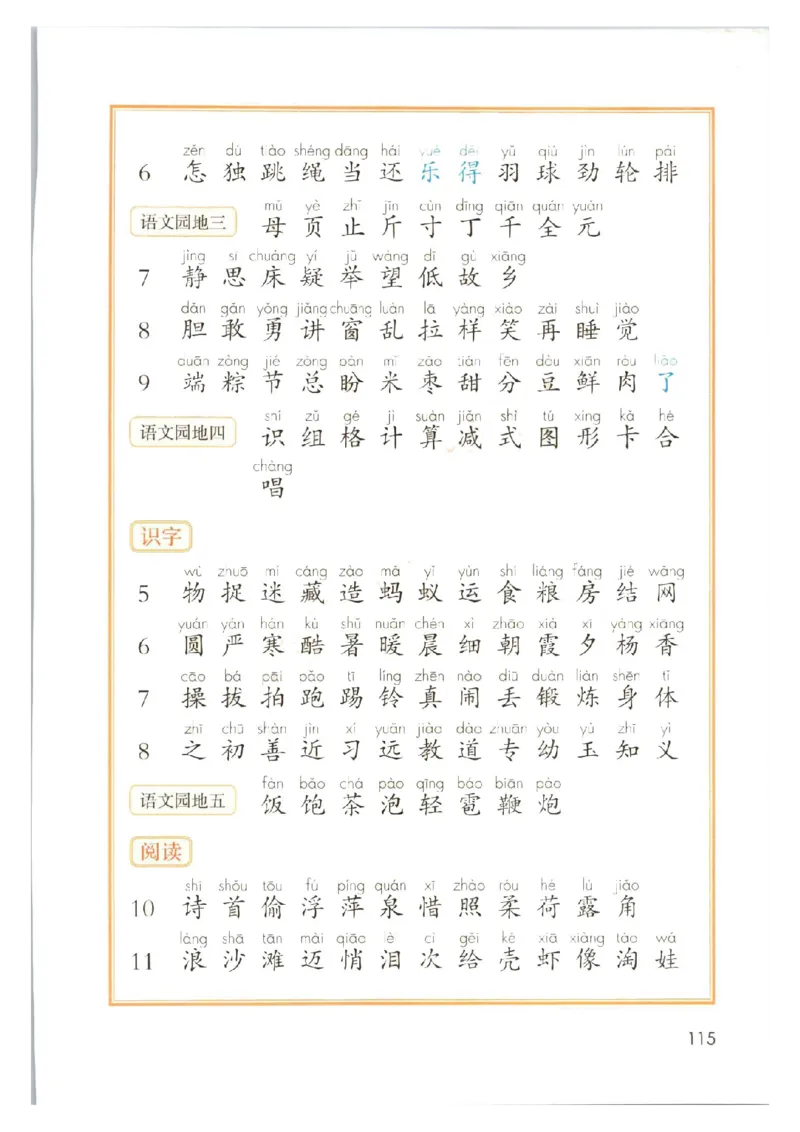 zěn dú tiào shéng dāng hái yuè děi yǔ qiú jìn lún pái
6 怎 独 跳 绳 当 还 乐 得 羽 球 劲 轮 排
mǔ yè zhǐ jīn cùn dīng qiān quán yuán
语文园地三 母 页 止 斤 寸 丁 千 全 元
jìng sī chuáng yí jǔ wàng dī gù xiāng
7 静 思 床 疑 举 望 低 故 乡
dǎn gǎn yǒng jiǎng chuāng luàn lā yàng xiào zài shuì jiào
8 胆 敢 勇 讲 窗 乱 拉 样 笑 再 睡 觉
duān zòng jié zǒng pàn mǐ zǎo tián fēn dòu xiān ròu liǎo
9 端 粽 节 总 盼 米 枣 甜 分 豆 鲜 肉 了
shí zǔ gé jì suàn jiǎn shì tú xíng kǎ hé
语文园地四 识 组 格 计 算 减 式 图 形 卡 合
chàng
唱
识字
wù zhuō mí cáng zào mǎ yǐ yùn shí liáng fáng jié wǎng
5 物 捉 迷 藏 造 蚂 蚁 运 食 粮 房 结 网
yuán yán hán kù shǔ nuǎn chén xì zhāo xiá xī yáng xiāng
6 圆 严 寒 酷 暑 暖 晨 细 朝 霞 夕 杨 香
cāo bá pāi pǎo tī líng zhēn nào diū duàn liàn shēn tǐ
7 操 拔 拍 跑 踢 铃 真 闹 丢 锻 炼 身 体
zhī chū shàn jìn xí yuǎn jiào dào zhuān yòu yù zhī yì
8 之 初 善 近 习 远 教 道 专 幼 玉 知 义
fàn bǎo chá pào qīng báo biān pào
语文园地五 饭 饱 茶 泡 轻 雹 鞭 炮
阅读
shī shǒu tōu fú píng quán xī zhào róu hé lù jiǎo
10 诗 首 偷 浮 萍 泉 惜 照 柔 荷 露 角
làng shā tān mài qiāo lèi cì gěi ké xiā xiàng táo wá
11 浪 沙 滩 迈 悄 泪 次 给 壳 虾 像 淘 娃
115